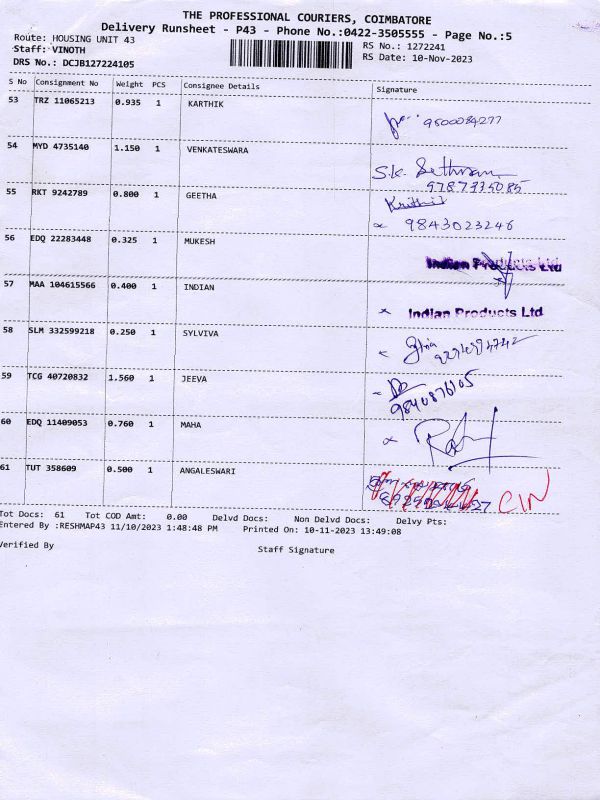 THE PROFESSIONAL COURIERS, COIMBATORE
Delivery Runsheet - P43 - Phone No.:0422-3505555 - Page No.:5
Route: HOUSING UNIT 43
RS No.: 1272241
Staff: VINOTH
RS Date: 10-Nov-2023
DRS No.: DCJB127224105
S No Consignment No Weight PCS Consignee Details Signature
53 TRZ 11065213 0.935 1 KARTHIK
9500084277
54 MYD 4735140 1.150 1 VENKATESWARA
S.K. Sethuram
9787335085
55 RKT 9242789 0.800 1 GEETHA
9843023246
56 EDQ 22283448 0.325 1 MUKESH
Indian Products Ltd
57 MAA 104615566 0.400 1 INDIAN
Indian Products Ltd
58 SLM 332599218 0.250 1 SYLVIVA
59 TCG 40720832 1.560 1 JEEVA
9840876105
60 EDQ 11409053 0.760 1 MAHA
61 TUT 358609 0.500 1 ANGALESWARI
CIN
Tot Docs: 61 Tot COD Amt: 0.00 Delvd Docs: Non Delvd Docs: Delvy Pts:
Entered By :RESHMAP43 11/10/2023 1:48:48 PM Printed On: 10-11-2023 13:49:08
Verified By
Staff Signature